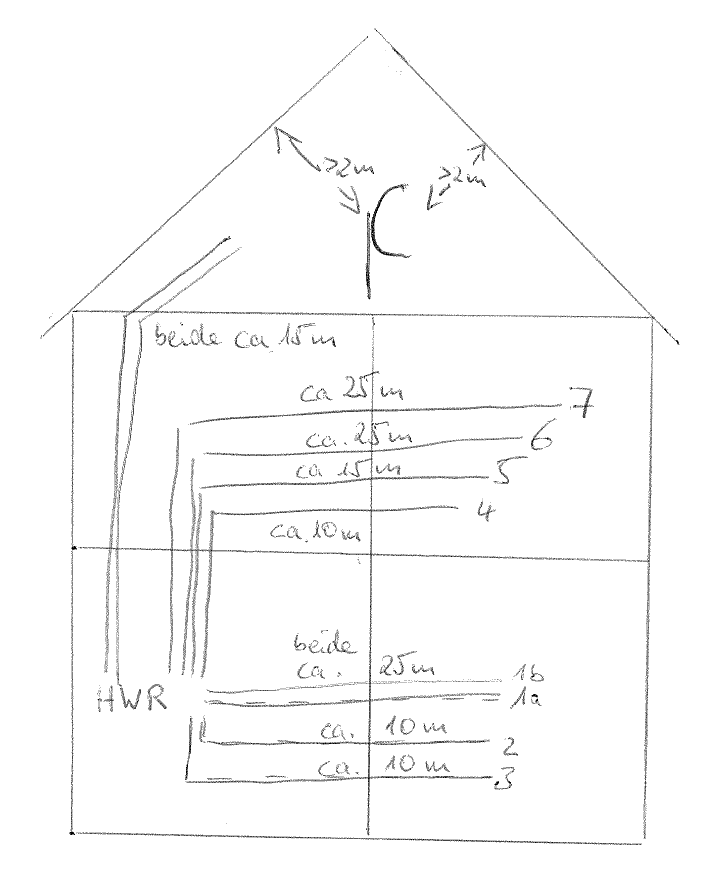 >2m >2m
beide ca. 15m
ca 25m 7
ca. 25m 6
ca 15m 5
ca. 10m 4
beide
ca. 25m 1b
HWR 1a
ca. 10m 2
ca. 10m 3